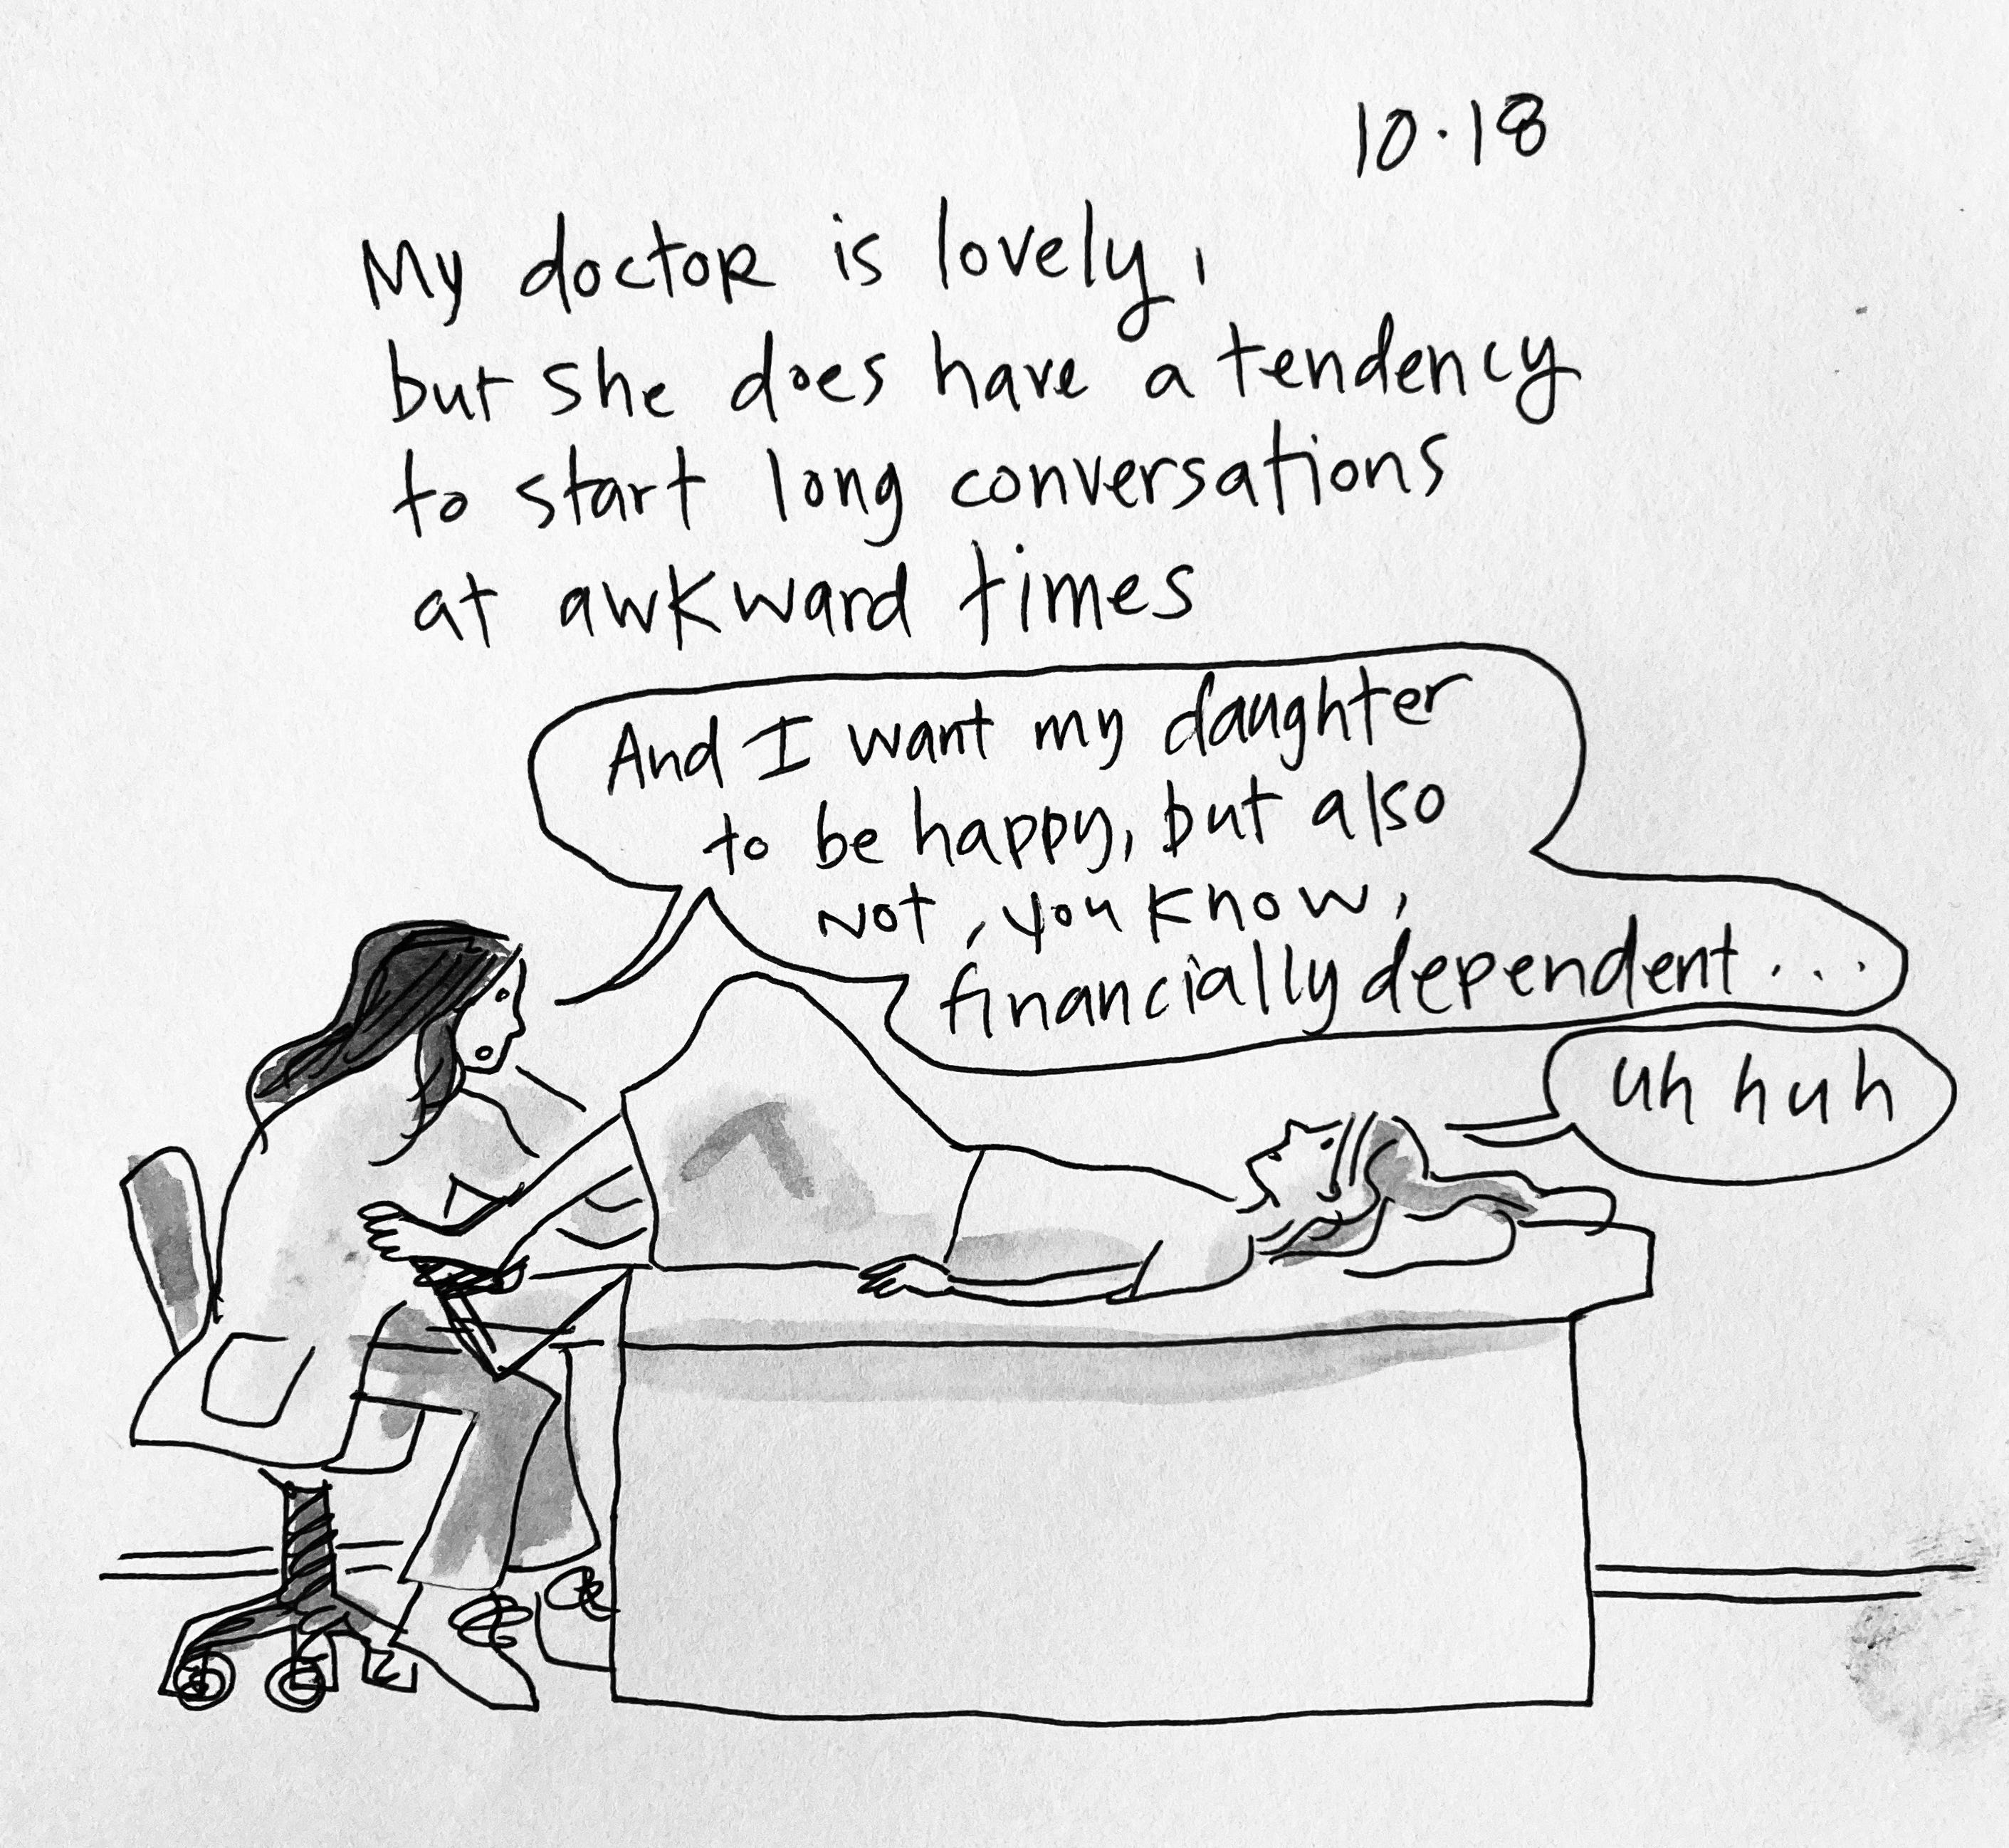 10.18
My doctor is lovely,
but she does have a tendency
to start long conversations
at awkward times
And I want my daughter
to be happy, but also
not, you know,
financially dependent...
uh huh